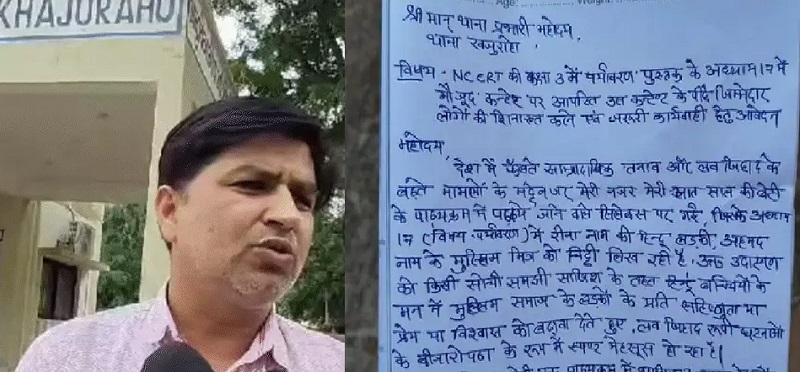 KHAJURAHO
श्रीमान् थाना प्रभारी महोदय
थाना खजुराहो,
विषय - NCERT की कक्षा 3 में पर्यावरण पुस्तक के अध्याय 17 में
मौजूद कन्टेन्ट पर आपत्ति उस कन्टेन्ट के पीछे जिम्मेदार
लोगों की शिनाख्त करने एवं जरूरी कार्यवाही हेतु आवेदन
महोदय,
देश में फैलते साम्प्रदायिक तनाव और लव जिहाद के
बढ़ते मामलों के मद्देनजर मेरी नजर मेरी आठ साल की बेटी
के पाठ्यक्रम में पढ़ाये जाने वाले सिलेबस पर गई, जिसके अध्याय
17 (विषय पर्यावरण) में रीना नाम की हिन्दू लड़की, अहमद
नाम के मुस्लिम मित्र को चिट्ठी लिख रही है, उक्त उदाहरण
को किसी सोची समझी साजिश के तहत हिन्दू बच्चियों के
मन में मुस्लिम समाज के लड़कों के प्रति सहिष्णुता या
प्रेम या विश्वास को बढ़ावा देते हुए, लव जिहाद रूपी घटनाओं
के बीजारोपण के रूप में स्पष्ट महसूस हो रहा है।